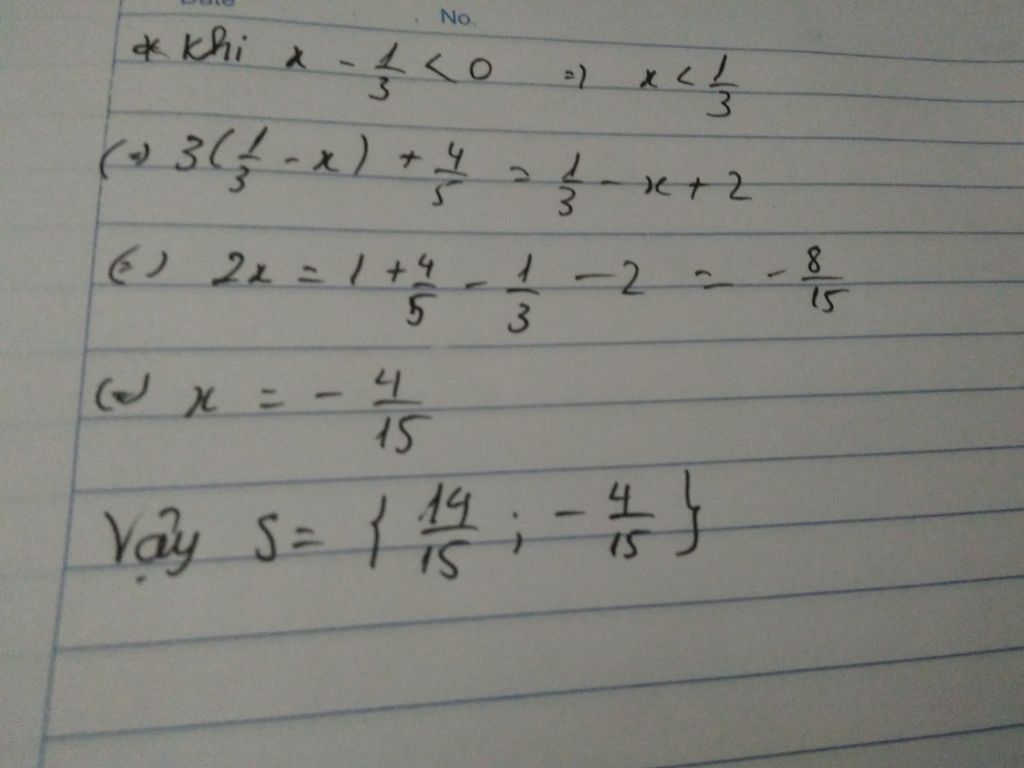 Date No.
* Khi x - 1/3 < 0 => x < 1/3
(=) 3(1/3 - x) + 4/5 = 1/3 - x + 2
(=) 2x = 1 + 4/5 - 1/3 - 2 = - 8/15
(=) x = - 4/15
Vậy S = { 14/15 ; - 4/15 }